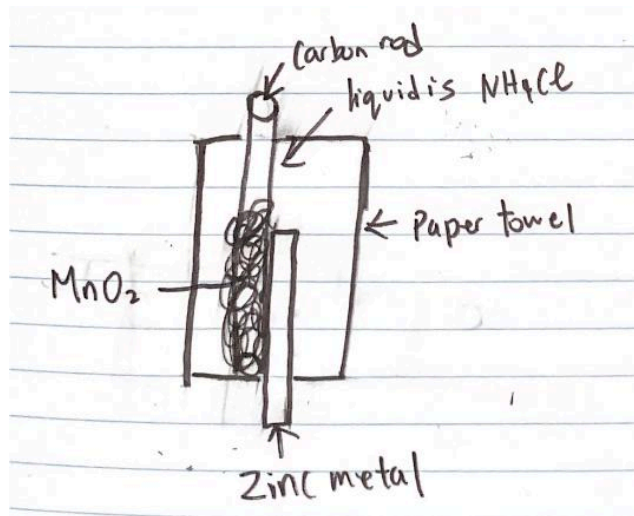 Carbon rod
liquid is NH4Cl
← Paper towel
MnO₂
Zinc metal